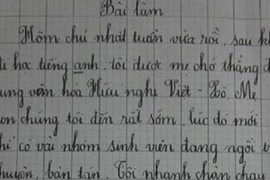 Bài làm
Hôm chủ nhật tuần vừa rồi, sau k
đi học tiếng anh, tôi được mẹ chở thẳng đ
ung văn hóa Hữu nghị Việt - Xô. Mẹ
on chúng tôi đến rất sớm, lúc đó mới
hỉ có vài nhóm sinh viên đang ngồi t
huyện, bàn tán. Tôi nhanh chân chạy